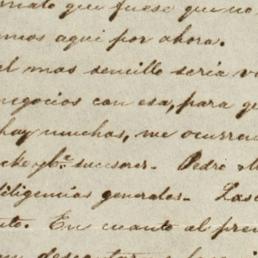 malo que fuese que no
mos aqui por ahora.
el mas sencillo seria v
negocios con esa, para q
hay muchas, me ocurren
cke y bº sucesores. Pedro M
diligencias generales. Las
to. En cuanto al pre